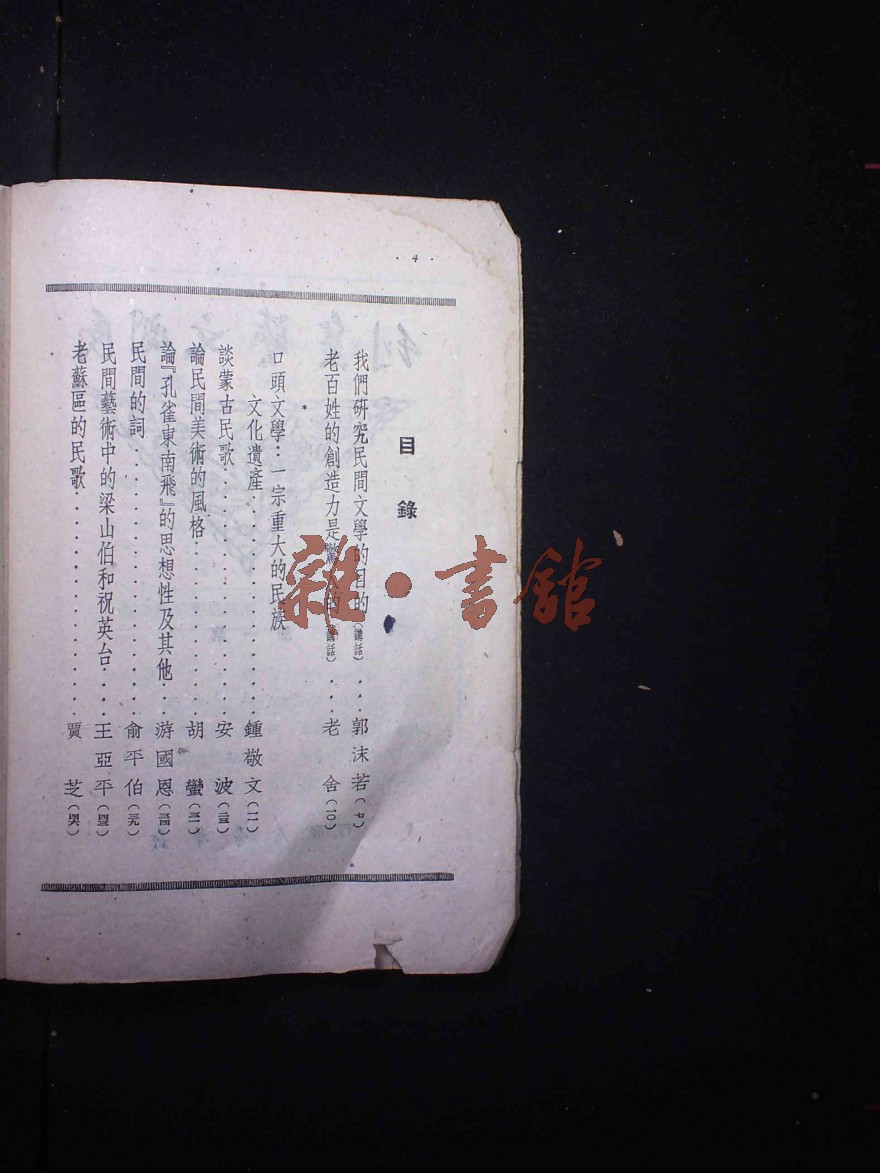 ·4·
目錄
我們研究民間文學的目的(講話)...郭沫若(七)
老百姓的創造力是驚人的(講話)...老舍(一〇)
口頭文學：一宗重大的民族
文化遺產............鍾敬文(一一)
談蒙古民歌............安波
論民間美術的風格............胡蠻
論『孔雀東南飛』的思想性及其他...游國恩
民間的詞............俞平伯(三九)
民間藝術中的梁山伯和祝英台....王亞平
老蘇區的民歌............賈芝
雜·書館